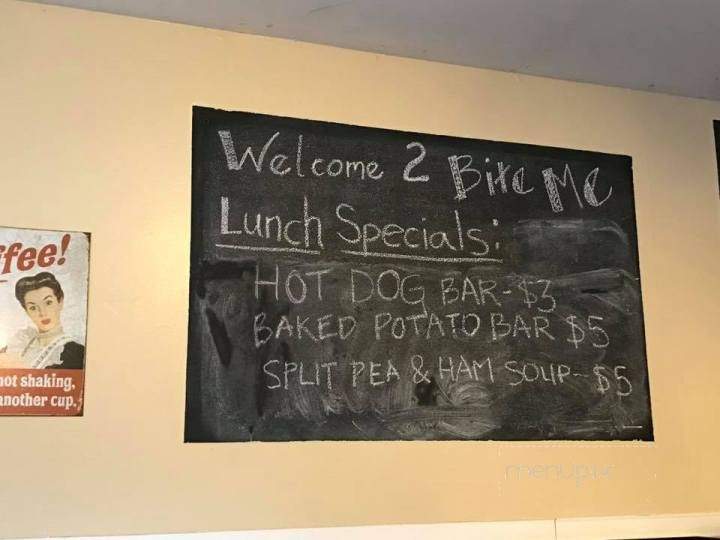 Welcome 2 Bite Me
Lunch Specials:
HOT DOG BAR-$3
BAKED POTATO BAR $5
SPLIT PEA & HAM SOUP--$5
ffee!
not shaking,
another cup.
menupix